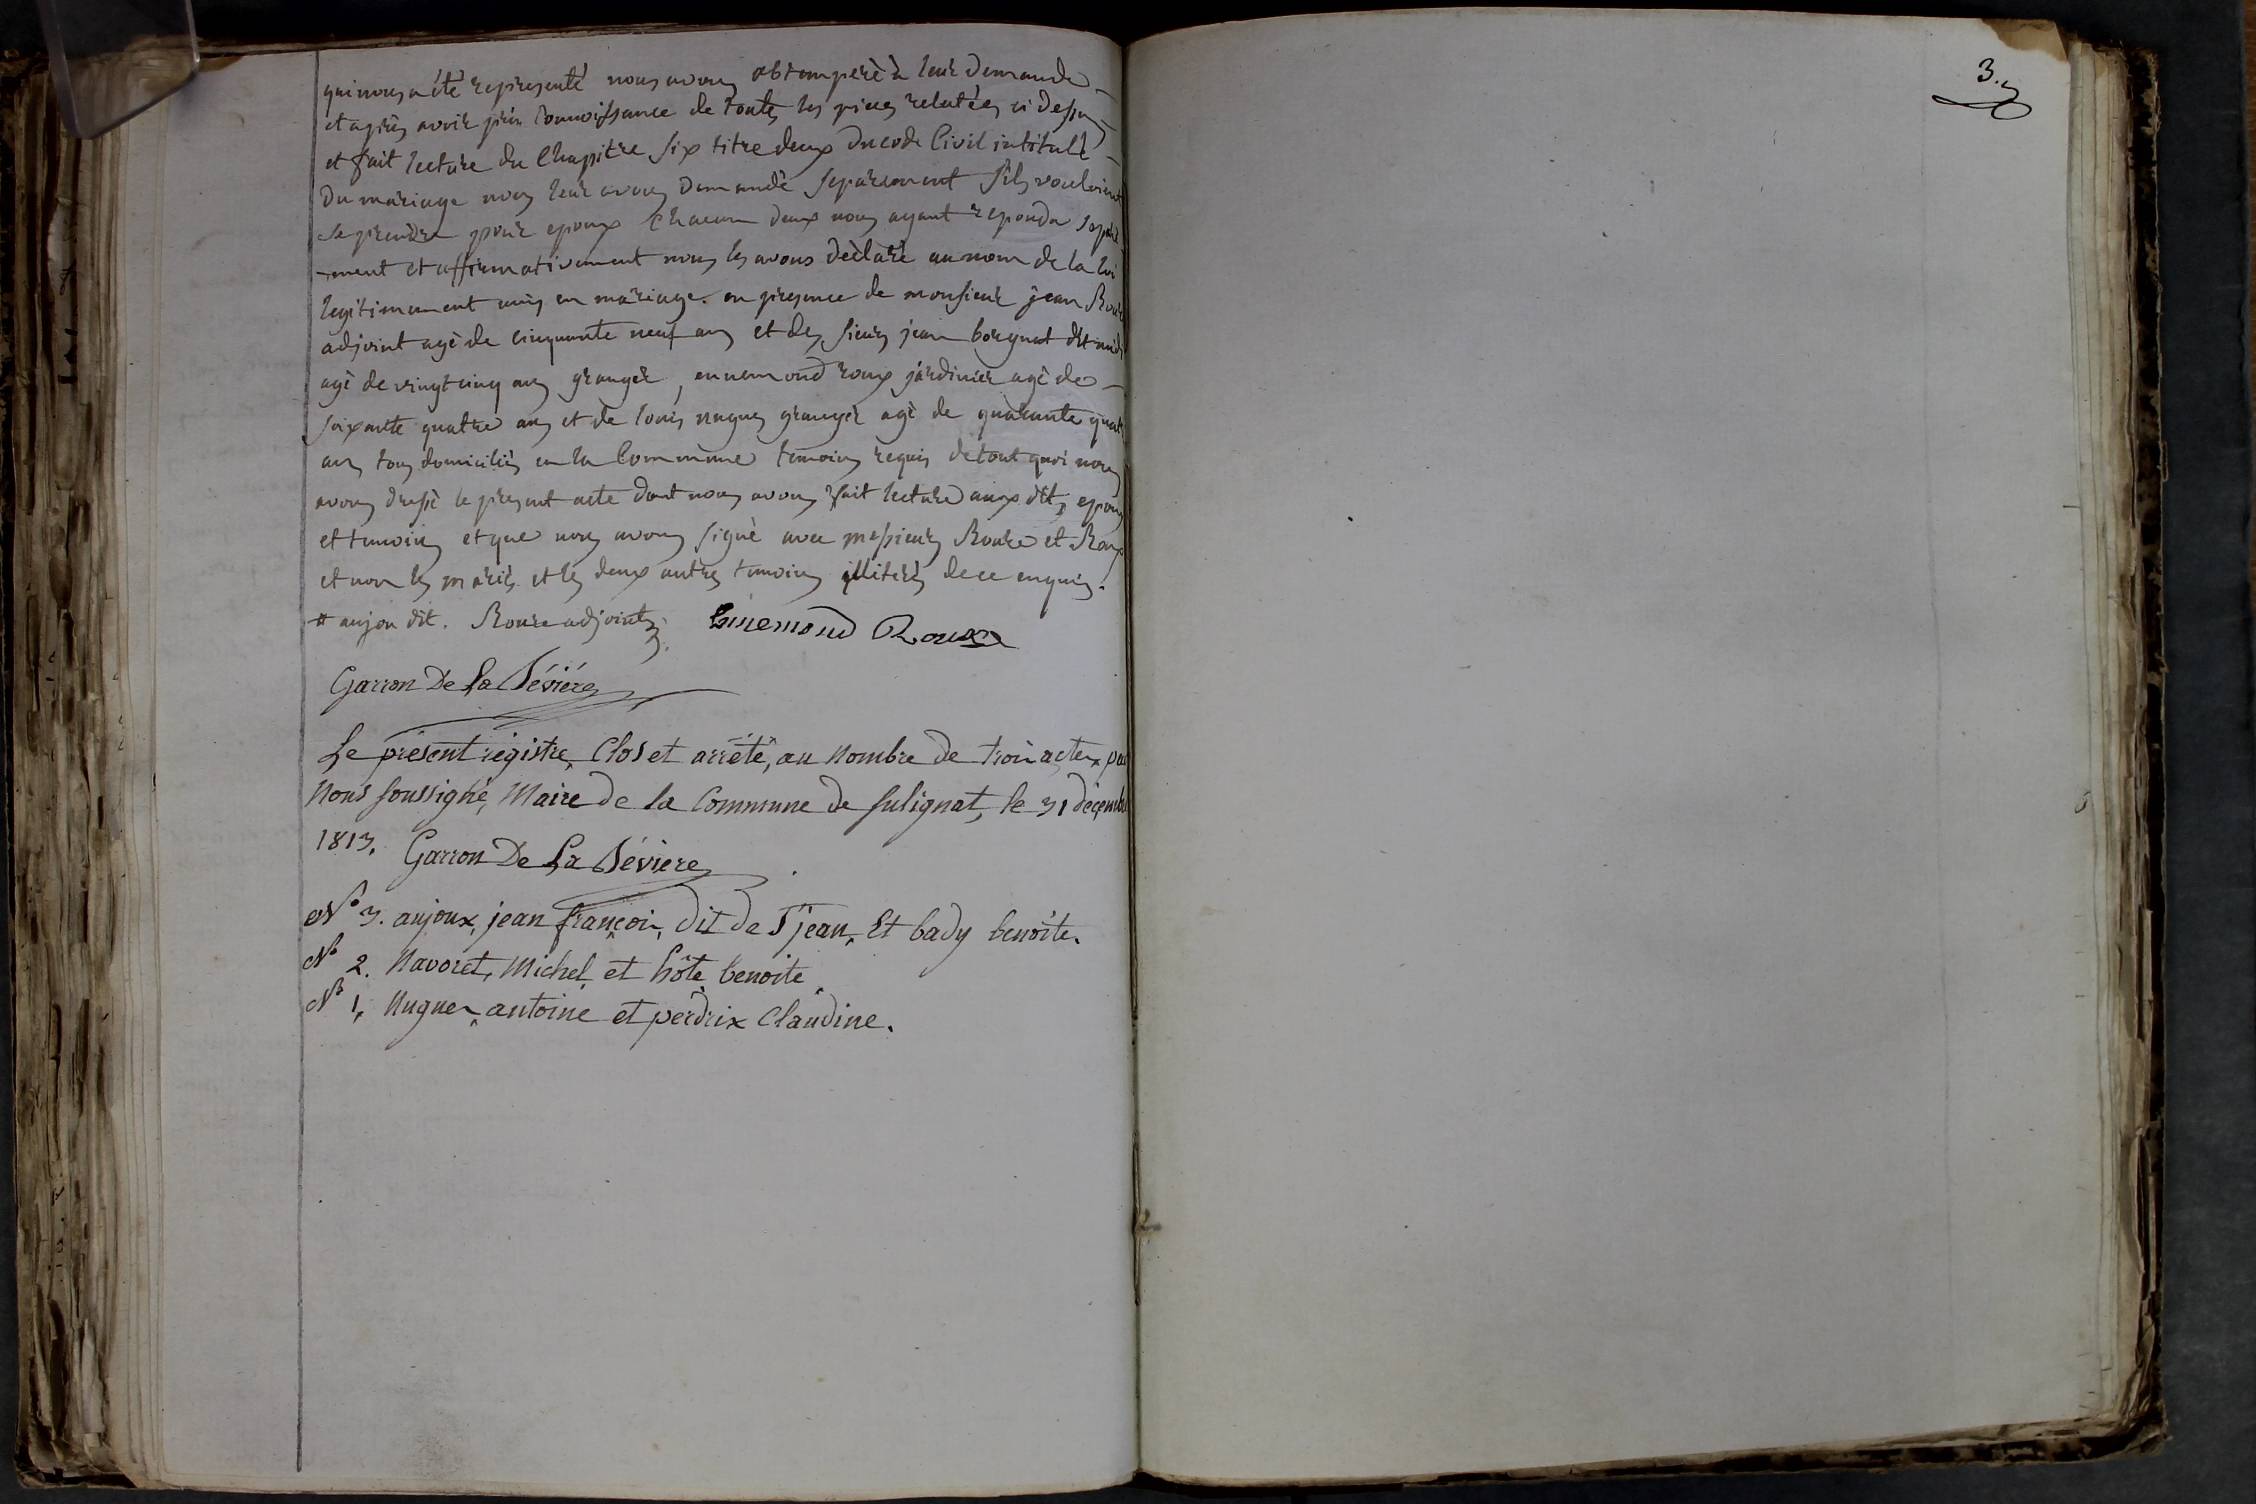 qui nous a été representé nous avons obtemperé à leur demande
et après avoir pris connoissance de toutes les pieces relatées ci dessus
et fait lecture du Chapitre six titre deux du code Civil intitulé
Du mariage nous leur avons Demandé separement s'ils vouloient
se prendre pour epoux Chacun deux nous ayant repondu separé
-ment et affirmativement nous les avons déclaré au nom de la loi
legitimement unis en mariage. en presence de monsieur jean Roure
adjoint agé de cinquante neuf ans et des sieurs jean borgnat dit
agé de vingt cinq ans granger, ennemond roux jardinier agé de
soixante quatre ans et de louis nugues granger agé de quarante quatre
ans tous domiciliés en la Commune temoins requis de tout quoi nous
avons dressé le present acte dont nous avons fait lecture aux dits epoux
et temoins et que nous avons signé avec messieurs Roure et Roux
et non les mariés et les deux autres temoins illitérés de ce enquis.
# anjou dit. Roure adjoint Ennemond Roux
Garron De La Bévière
Le présent régistre, Clos et arrêté, au Nombre de trois actes, par
Nous soussigné, Maire de la Commune de Sulignat, le 31 décembre
1813. Garron De La Bévière
N° 3. anjoux, jean françois, dit de St jean, Et bady benoite.
N° 2. Navoret, Michel, et hôte benoite
N° 1, Nugues antoine et perdrix Claudine.
3.